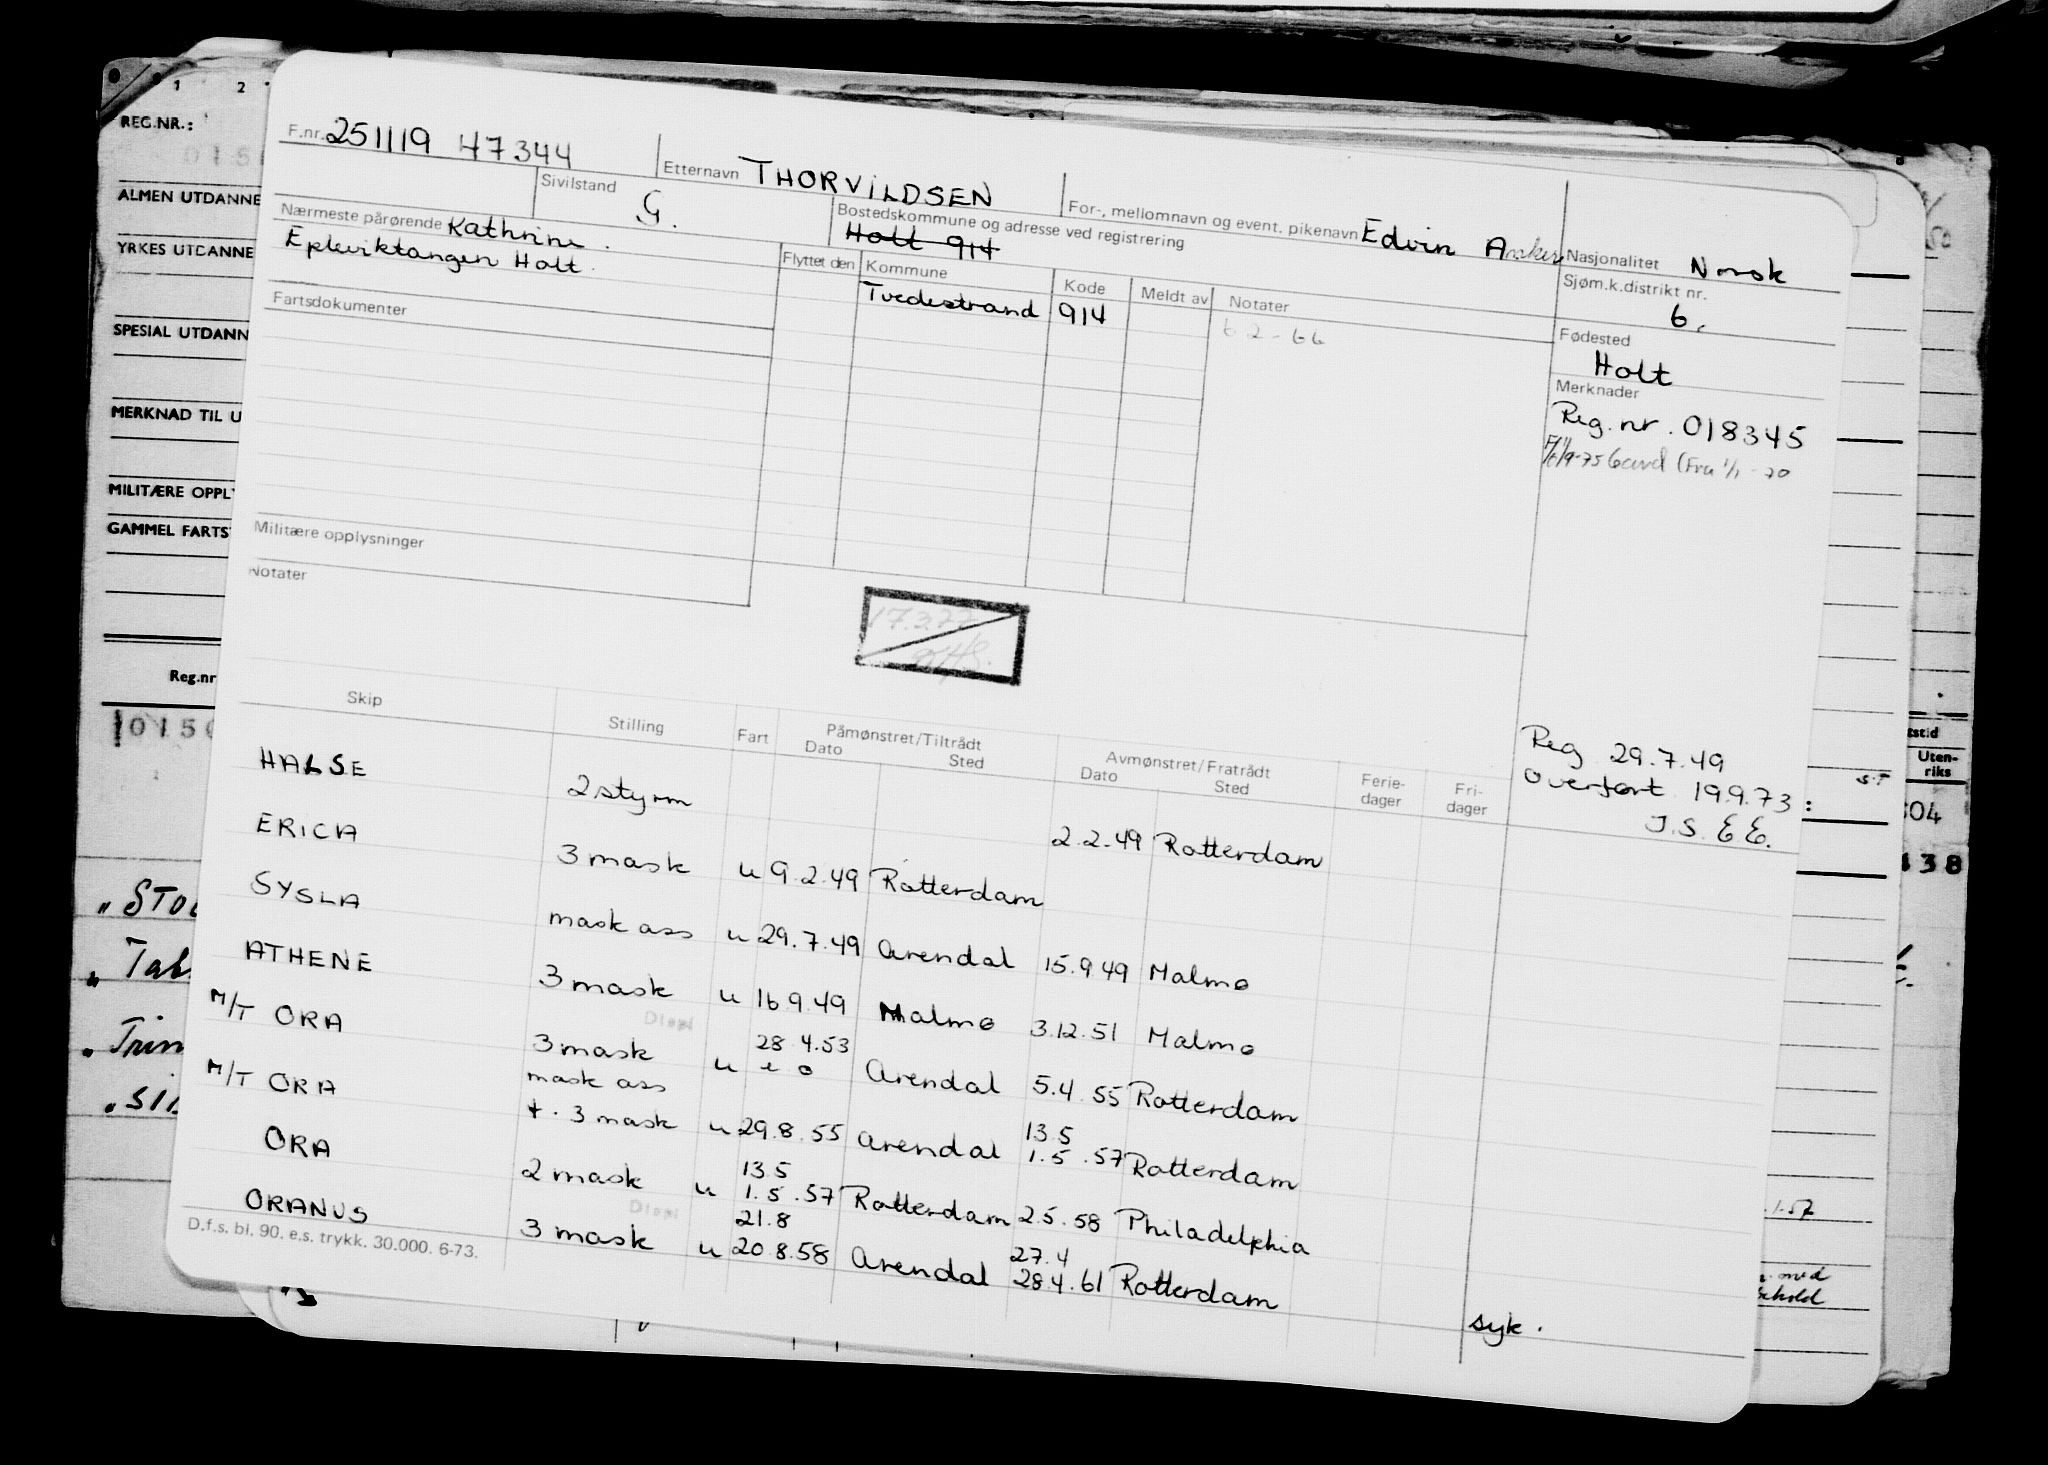 1 2
REG.NR.:
ALMEN UTDANNE
YRKES UTDANNE
SPESIAL UTDANN
MERKNAD TIL U
MILITÆRE OPPL
GAMMEL FARTS
Reg.nr
0150
"STO
"Tab
"Trin
"SI
F.nr. 251119 47344
Etternavn THORVILDSEN
For-, mellomnavn og event. pikenavn Edvin Anker
Nasjonalitet Norsk
Sivilstand G.
Nærmeste pårørende Kathrine.
Bostedskommune og adresse ved registrering
Holt 914
Epleviktangen Holt.
Sjøm.k.distrikt nr.
6.
Flyttet den Kommune Kode Meldt av Notater
Tvedestrand 914
6 2-66
Fartsdokumenter
Fødested
Holt
Merknader
Reg.nr. 018345
Militære opplysninger
Notater
17.3.77
Reg 29.7.49
Overført 19.9.73:
J.S. EE.
Skip Stilling Fart Påmønstret/Tiltrådt Avmønstret/Fratrådt Ferie- Fri-
Dato Sted Dato Sted dager dager
HALSE 2 styrm 2.2.49 Rotterdam
ERICA 3 mask u 9.2.49 Rotterdam
SYSLA mask ass u 29.7.49 Arendal 15.9.49 Malmø
ATHENE 3 mask u 16.9.49 Malmø 3.12.51 Malmø
Disp
28 4.53
M/T ORA 3 mask u Arendal 5.4.55 Rotterdam
mask ass 13.5
M/T ORA +. 3 mask u 29.8.55 Arendal 1.5.57 Rotterdam
13.5
ORA 2 mask u 1.5.57 Rotterdam 2.5.58 Philadelphia
Disp
21.8 27.4
ORANUS 3 mask u 20.8.58 Arendal 28.4.61 Rotterdam syk.
D.f.s. bl. 90. e.s. trykk. 30.000. 6-73.
tstid
Uten-
riks
S.T
04
38
1.57
med
behold